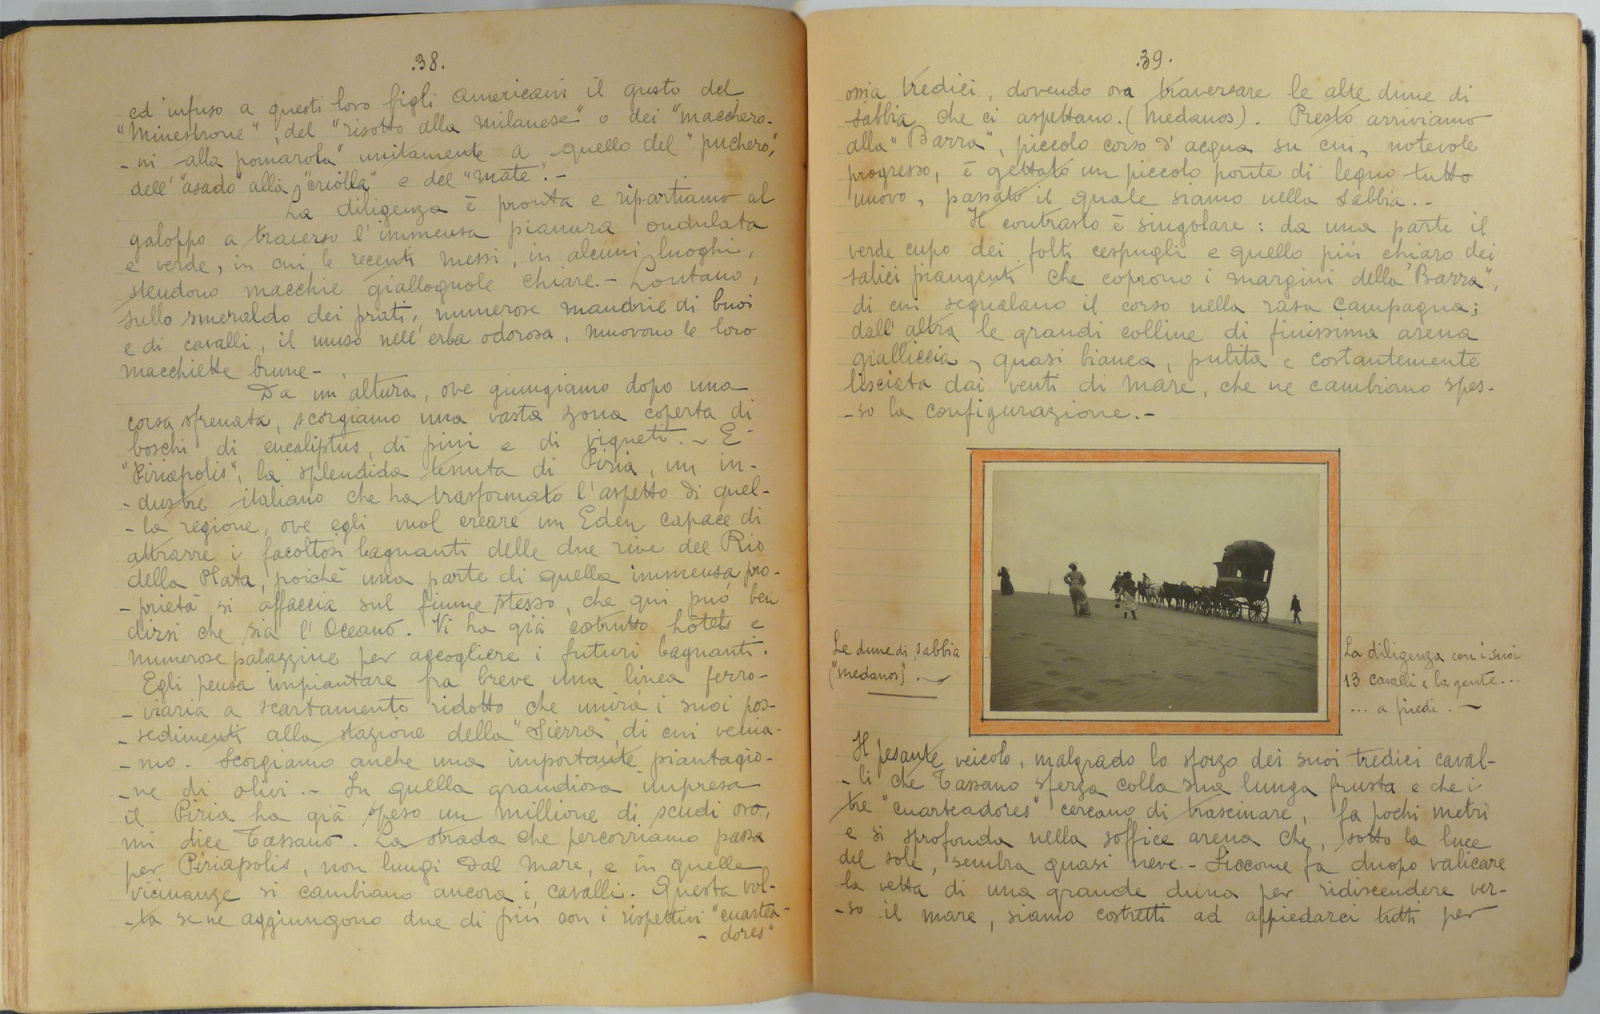 .38.
ed infuso a questi loro figli americani il gusto del
"Minestrone", del "risotto alla milanese" o dei "macchero-
-ni alla pomarola" unitamente a quello del "puchero",
dell'"asado" alla "criolla" e del "mate".-
La diligenza è pronta e ripartiamo al
galoppo a traverso l'immensa pianura ondulata
e verde, in cui le recenti messi, in alcuni luoghi,
stendono macchie giallognole chiare.- Lontano,
sullo smeraldo dei prati, numerose mandrie di buoi
e di cavalli, il muso nell'erba odorosa, muovono le loro
macchiette brune-.
Da un'altura, ove giungiamo dopo una
corsa sfrenata, scorgiamo una vasta zona coperta di
boschi di eucaliptus, di pini e di vigneti.- E'
"Piriapolis", la splendida tenuta di Piria, un in-
-dustre italiano che ha trasformato l'aspetto di quel-
-la regione, ove egli vuol creare un Eden capace di
attrarre i facoltosi bagnanti delle due rive del Rio
della Plata, poichè una parte di quella immensa pro-
-prietà si affaccia sul fiume stesso, che qui può ben
dirsi che sia l'Oceano. Vi ha già costrutto hôtels e
numerose palazzine per accogliere i futuri bagnanti.
Egli pensa impiantare fra breve una linea ferro-
-viaria a scartamento ridotto che unirà i suoi pos-
-sedimenti alla stazione della "Sierra", di cui venia-
-mo. Scorgiamo anche una importante piantagio-
-ne di olivi.- In quella grandiosa impresa
il Piria ha già speso un millione di scudi oro,
mi dice Tassano. La strada che percorriamo passa
per Piriapolis, non lungi dal mare, e in quelle
vicinanze si cambiano ancora i cavalli. Questa vol-
-ta se ne aggiungono due di più con i rispettivi "cuartea-
-dores"
.39.
ossia tredici, dovendo ora traversare le alte dune di
sabbia che ci aspettano. (Medanos). Presto arriviamo
alla "Barra", piccolo corso d'acqua su cui, notevole
progresso, è gettato un piccolo ponte di legno tutto
nuovo, passato il quale siamo nella sabbia.-
Il contrasto è singolare: da una parte il
verde cupo dei folti cespugli e quello più chiaro dei
salici piangenti che coprono i margini della "Barra",
di cui segnalano il corso nella rasa campagna;
dall'altra le grandi colline di finissima arena
gialliccia, quasi bianca, pulita e costantemente
lisciata dai venti di mare, che ne cambiano spes-
-so la configurazione.-
Le dune di sabbia
("medanos).
La diligenza con i suoi
13 cavalli e la gente...
... a piedi.-
Il pesante veicolo, malgrado lo sforzo dei suoi tredici caval-
-li che Tassano sferza colla sua lunga frusta e che i
tre "cuarteadores" cercano di trascinare, fa pochi metri
e si sprofonda nella soffice arena che, sotto la luce
del sole, sembra quasi neve.- Siccome fa duopo valicare
la vetta di una grande duna per ridiscendere ver-
-so il mare, siamo costretti ad appiedarci tutti per